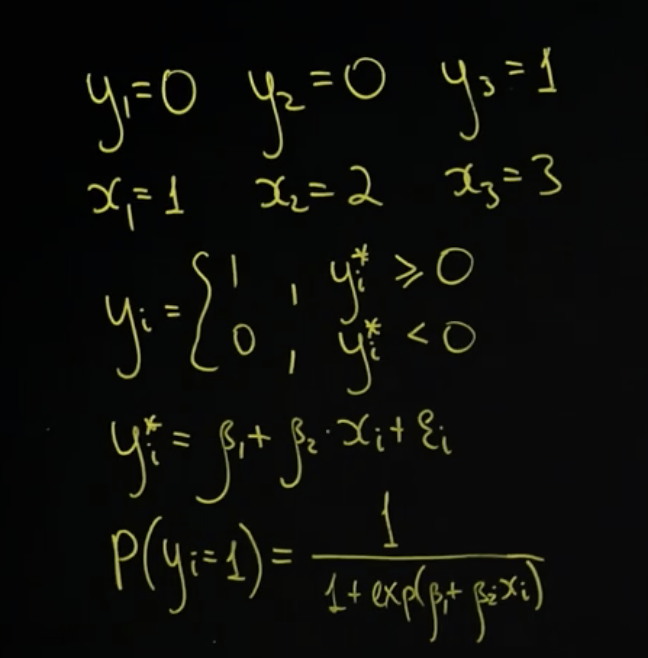 y₁=0 y₂=0 y₃=1
x₁=1 x₂=2 x₃=3
yᵢ = { 1 , yᵢ* ⩾ 0
0 , yᵢ* < 0
yᵢ* = β₁ + β₂·xᵢ + εᵢ
P(yᵢ=1) = 1 / (1 + exp(β₁ + β₂xᵢ))